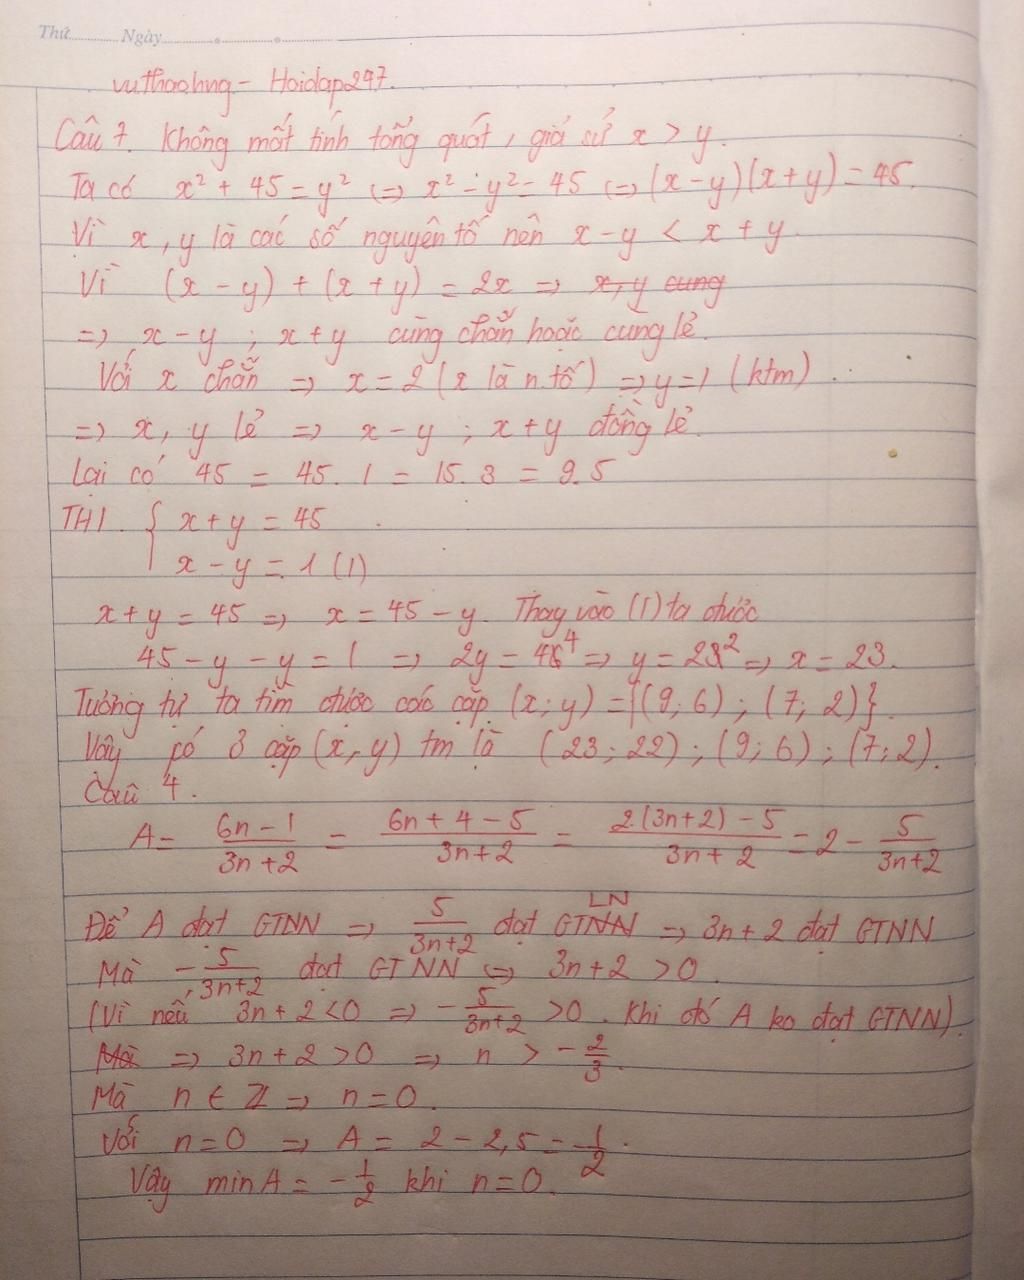 Thứ Ngày
vuthaohng - Hoidap247.
Câu 7. Không mất tính tổng quát, giả sử x > y.
Ta có x² + 45 = y² ⇔ x² - y² = 45 ⇔ (x-y)(x+y) = 45.
Vì x, y là các số nguyên tố nên x - y < x + y.
Vì (x - y) + (x + y) = 2x ⇒ x, y cung
⇒ x - y ; x + y cùng chẵn hoặc cung lẻ.
Với x chẵn ⇒ x = 2 (x là n.tố) ⇒ y = 1 (ktm)
⇒ x, y lẻ ⇒ x - y ; x + y đồng lẻ.
Lại có 45 = 45. 1 = 15. 3 = 9.5
TH1. { x + y = 45
x - y = 1 (1)
x + y = 45 ⇒ x = 45 - y. Thay vào (1) ta được
45 - y - y = 1 ⇒ 2y = 44 ⇒ y = 22 ⇒ x = 23.
Tương tự ta tìm được các cặp (x; y) = {(9; 6) ; (7; 2)}.
Vậy có 3 cặp (x, y) tm là (23; 22) ; (9; 6) ; (7; 2).
Câu 4.
A = (6n - 1)/(3n + 2) = (6n + 4 - 5)/(3n + 2) = (2.(3n+2) - 5)/(3n + 2) = 2 - 5/(3n+2)
Để A đạt GTNN ⇒ 5/(3n+2) đạt GTLN ⇒ 3n + 2 đạt GTNN
Mà - 5/(3n+2) đạt GTNN ⇔ 3n + 2 > 0.
(Vì nếu 3n + 2 < 0 ⇒ - 5/(3n+2) > 0. Khi đó A ko đạt GTNN).
Mà ⇒ 3n + 2 > 0 ⇒ n > - 2/3.
Mà n ∈ Z ⇒ n = 0.
Với n = 0 ⇒ A = 2 - 2,5 = - 1/2.
Vậy min A = - 1/2 khi n = 0.